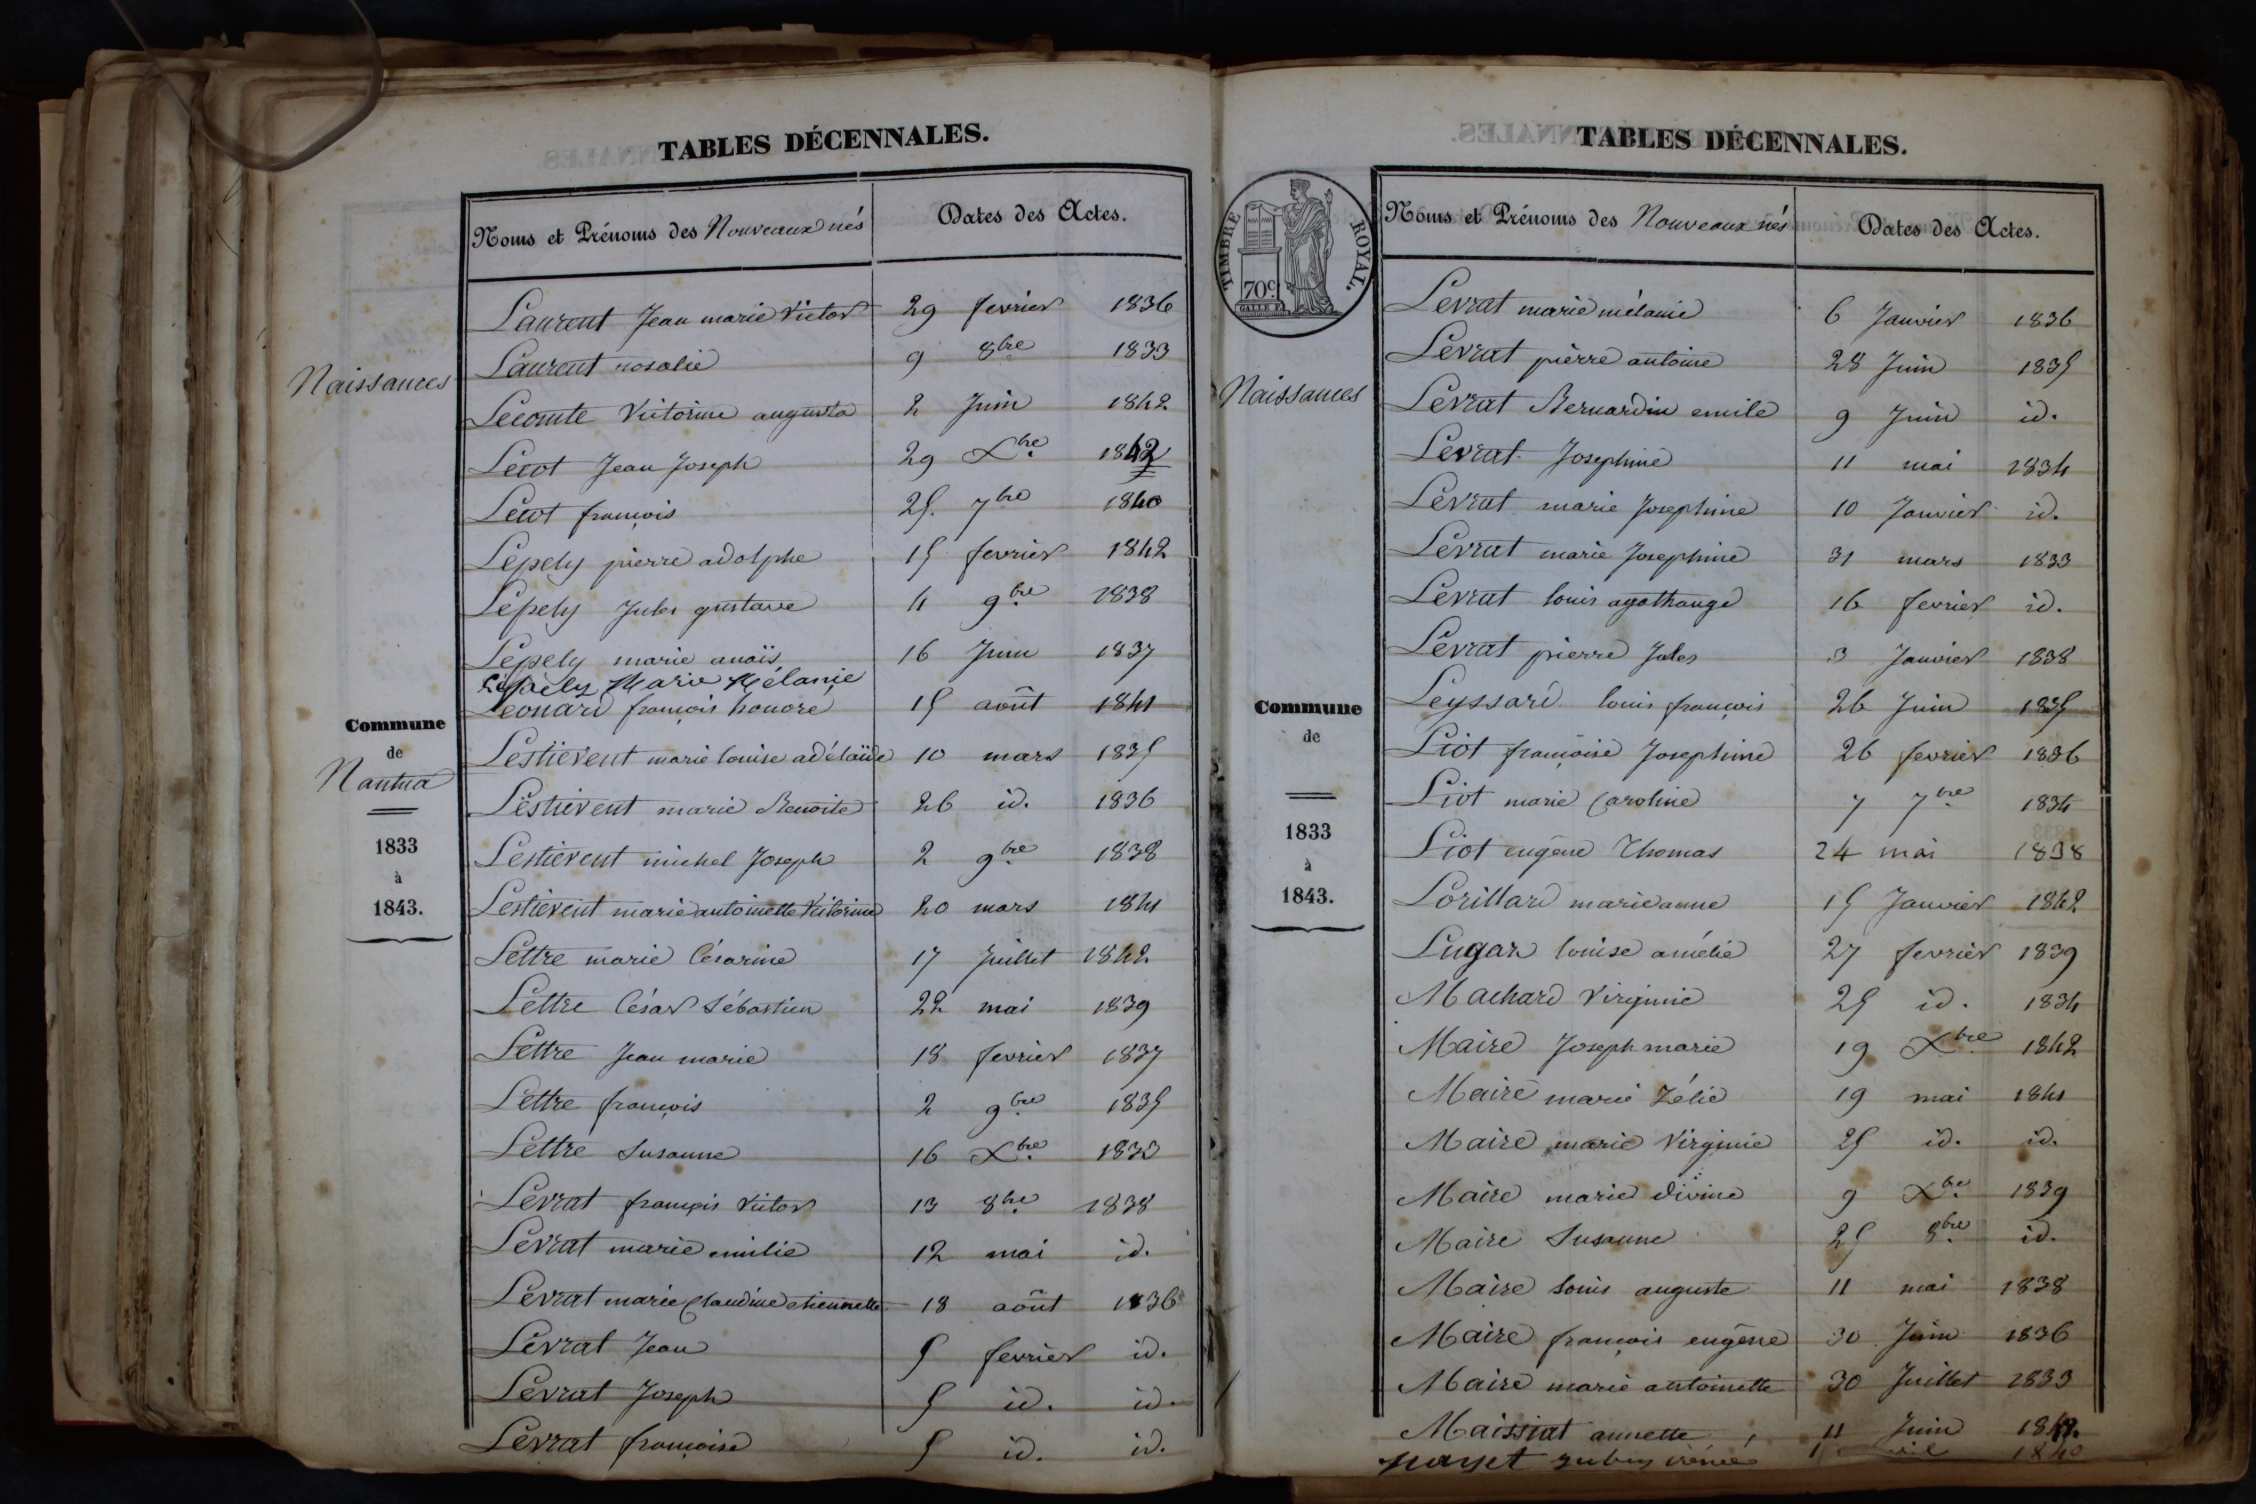 TABLES DÉCENNALES.
Noms et Prénoms des Nouveaux nés Dates des Actes.
Naissances
Commune
de
Nantua
1833
à
1843.
Laurent Jean marie Victor 29 fevrier 1836
Laurent rosalie 9 8bre 1833
Lecomte Victorine augusta 2 Juin 1842
Lecot Jean Joseph 29 Xbre 1842
Lecot françois 25 7bre 1840
Lepely pierre adolphe 15 fevrier 1842
Lepely Jules gustave 11 9bre 1838
Lepely marie anaïs 16 Juin 1837
Lepely Marie Mélanie
Léonard françois honoré 15 août 1841
Lestievent marie louise adélaïde 10 mars 1835
Lestievent marie Benoite 26 id. 1836
Lestievent michel Joseph 2 9bre 1838
Lestievent marie antoinette Victorine 20 mars 1841
Lettre marie Césarine 17 Juillet 1842
Lettre César Sébastien 22 mai 1839
Lettre Jean marie 18 fevrier 1837
Lettre françois 2 9bre 1835
Lettre Susanne 16 Xbre 1833
Levrat françois Victor 13 8bre 1838
Levrat marie emilie 12 mai id.
Levrat marie Claudine etiennette 18 août 1836
Levrat Jean 5 fevrier id.
Levrat Joseph 5 id. id.
Levrat françoise 5 id. id.
TABLES DÉCENNALES.
TIMBRE ROYAL.
70c.
Noms et Prénoms des Nouveaux nés Dates des Actes.
Naissances
Commune
de
1833
à
1843.
Levrat marie mélanie 6 Janvier 1836
Levrat pierre antoine 28 Juin 1835
Levrat Bernardin emile 9 Juin id.
Levrat Josephine 11 mai 1834
Levrat marie Josephine 10 Janvier id.
Levrat marie Josephine 31 mars 1833
Levrat louis agathange 16 fevrier id.
Levrat pierre Jules 3 Janvier 1838
Leyssard louis françois 26 Juin 1835
Liot françoise Josephine 26 fevrier 1836
Liot marie Caroline 7 7bre 1834
Liot eugène Thomas 24 mai 1838
Lorillard marie anne 15 Janvier 1842
Lugan louise amélie 27 fevrier 1839
Machard Virginie 25 id. 1834
Maire Joseph marie 19 Xbre 1842
Maire marie Zélie 19 mai 1841
Maire marie Virginie 25 id. id.
Maire marie divine 9 Xbre 1839
Maire Susanne 25 8bre id.
Maire louis auguste 11 mai 1838
Maire françois eugène 30 Juin 1836
Maire marie antoinette 30 Juillet 1833
Maissiat annette 11 Juin
1840